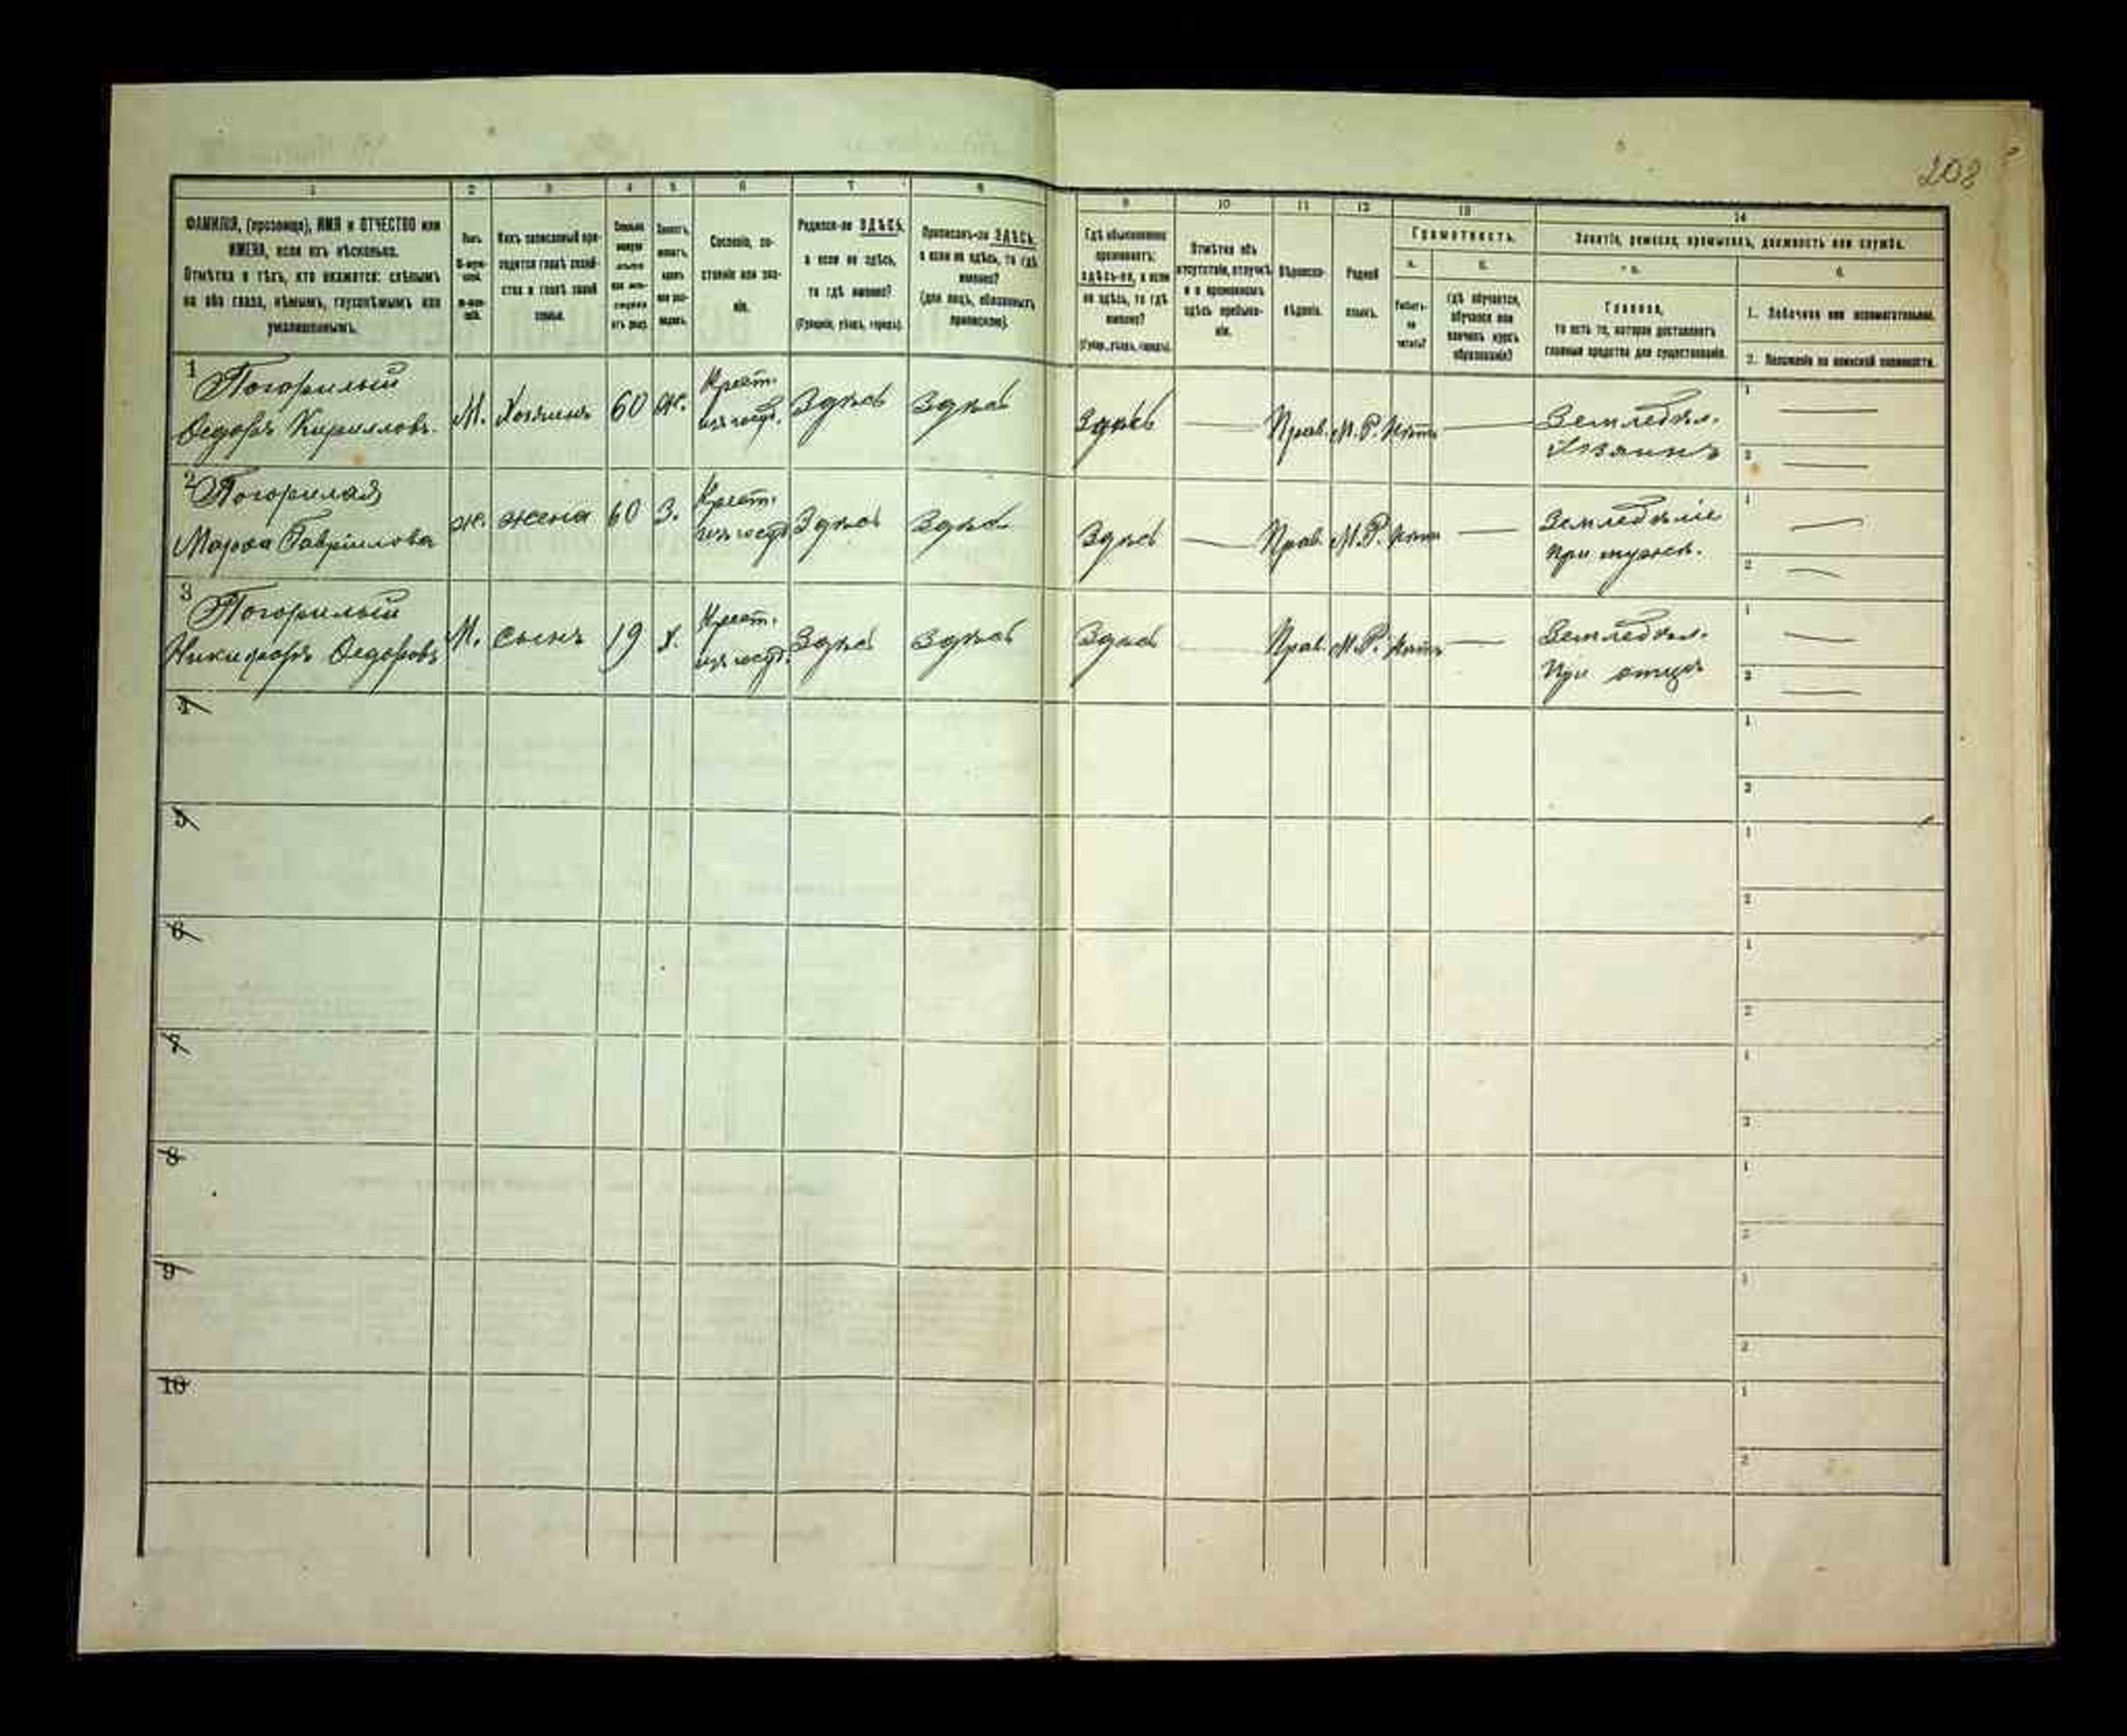 208
1
2
3
4
5
6
7
8
9
10
11
12
13
14
ФАМИЛІЯ, (прозвище), ИМЯ и ОТЧЕСТВО или
ИМЕНА, если ихъ нѣсколько.
Отмѣтка о тѣхъ, кто окажется: слѣпымъ
на оба глаза, нѣмымъ, глухонѣмымъ или
умалишеннымъ.
Полъ.
Какъ записанный при-
ходится главѣ хозяй-
ства и главѣ своей
семьи.
Сословіе, со-
стояніе или зва-
ніе.
Родился-ли ЗДѢСЬ,
а если не здѣсь,
то гдѣ именно?
(Губернія, уѣздъ, городъ).
Приписанъ-ли ЗДѢСЬ,
а если не здѣсь, то гдѣ
именно?
(для лицъ, обязанныхъ
припискою).
Гдѣ обыкновенно
проживаетъ:
здѣсь-ли, а если
не здѣсь, то гдѣ
именно?
(Губер., уѣздъ, городъ).
Отмѣтка объ
отсутствіи, отлучкѣ
и о временномъ
здѣсь пребыва-
ніи.
Вѣроиспо-
вѣданіе.
Родной
языкъ.
Грамотность.
а.
б.
Умѣетъ-
ли
читать?
Гдѣ обучается,
обучался или
кончилъ курсъ
образованія?
Занятіе, ремесло, промыселъ, должность или служба.
а.
б.
Главное,
то есть то, которое доставляетъ
главныя средства для существованія.
1. Побочное или вспомогательное.
2. Положеніе по воинской повинности.
1 Погорилый
Ѳедоръ Кирилловъ. М. Хозяинъ 60 Ж. Крест. изъ госуд. Здѣсь Здѣсь Здѣсь — Прав. М.Р. Нѣтъ — Земледѣл. Хозяинъ 1 — 2 —
2 Погорилая
Марфа Гавриилова ж. жена 60 З. Крест. изъ госуд. Здѣсь Здѣсь Здѣсь — Прав. М.Р. Нѣтъ — Земледѣліе При мужѣ. 1 — 2 —
3 Погорилый
Никифоръ Ѳедоровъ М. сынъ 19 Х. Крест. изъ госуд. Здѣсь Здѣсь Здѣсь Прав. М.Р. Нѣтъ — Земледѣл. При отцѣ 1 — 2 —
4 1 2
5 1 2
6 1 2
7 1 2
8 1 2
9 1 2
10 1 2